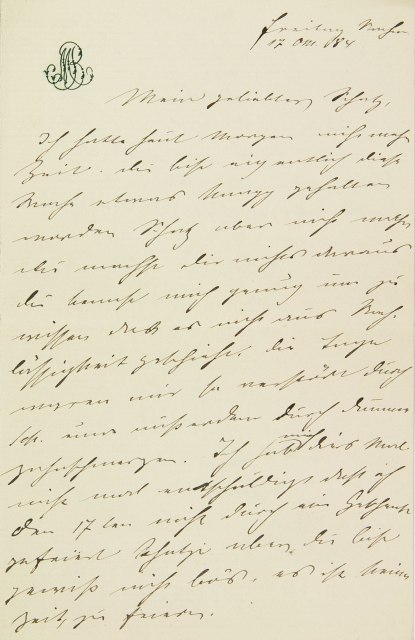 Freitag Nachm
17 Okt. 84
Mein geliebter Schatz,
Ich hatte heut Morgen nicht mehr
Zeit. du bist eigentlich diese
Woche etwas knapp gehalten
worden Schatz aber nicht wahr
du machst dir nichts daraus
du kennst mich genug um zu
wissen daß es nicht aus Nach-
lässigkeit geschieht, die Tage
waren mir so zerstört durch
Sch. und außerdem durch dummes
Zahnschmerzen. Ich hab mich dies Mal
nicht mal entschuldigt daß ich
den 17ten nicht durch ein Gedicht
gefeiert Schatzi aber, du bist
gewiß nicht bös, es ist keine
Zeit, zu feiern.